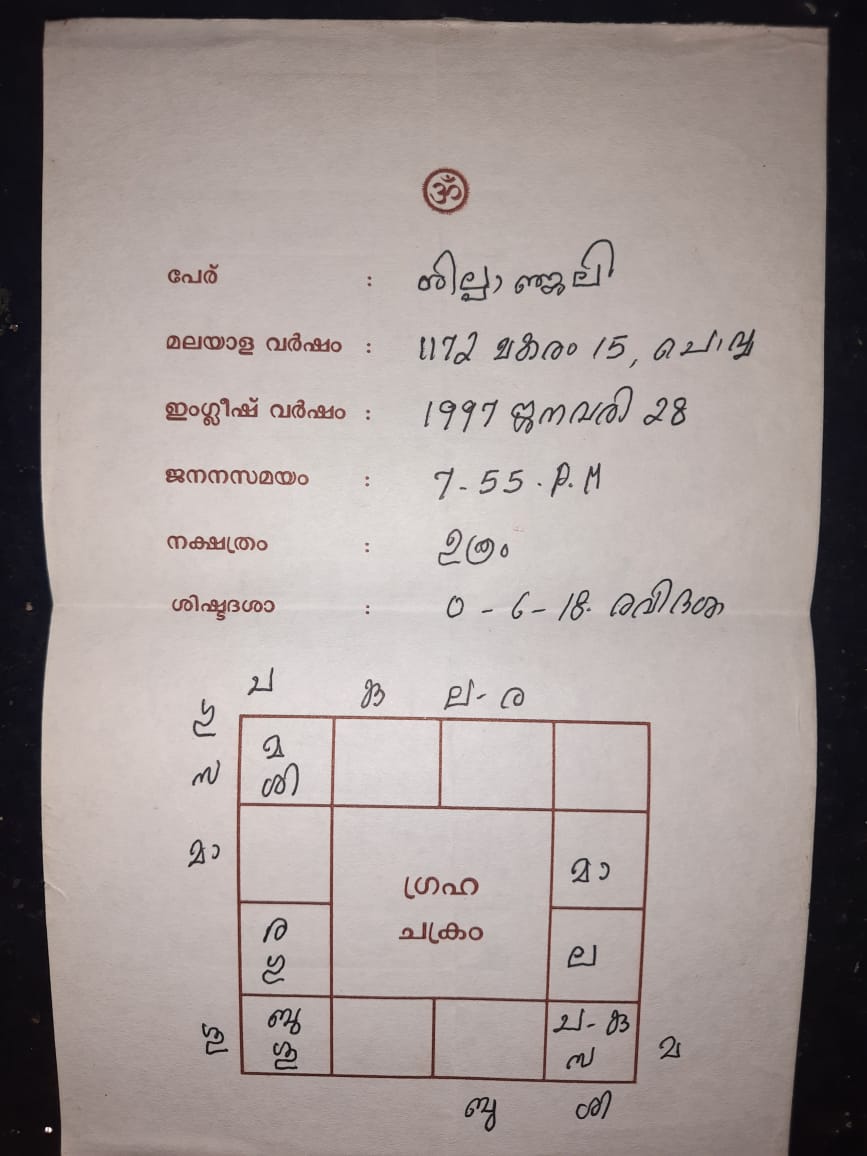 ॐ
പേര് : ശില്പാഞ്ജലി
മലയാള വർഷം : 1172 മകരം 15, ചൊവ്വ
ഇംഗ്ലീഷ് വർഷം : 1997 ജനവരി 28
ജനനസമയം : 7-55. P.M
നക്ഷത്രം : ഉത്രം
ശിഷ്ടദശാ : 0-6-18. രവിദശ
ച കു ല-ര
ഗു
മ
സ
ശി
മാ
മാ
ഗ്രഹ
ചക്രം
ര
ഗു
ല
ബു
ശു
ച-കു
സ
ശു
മ
ബു ശി